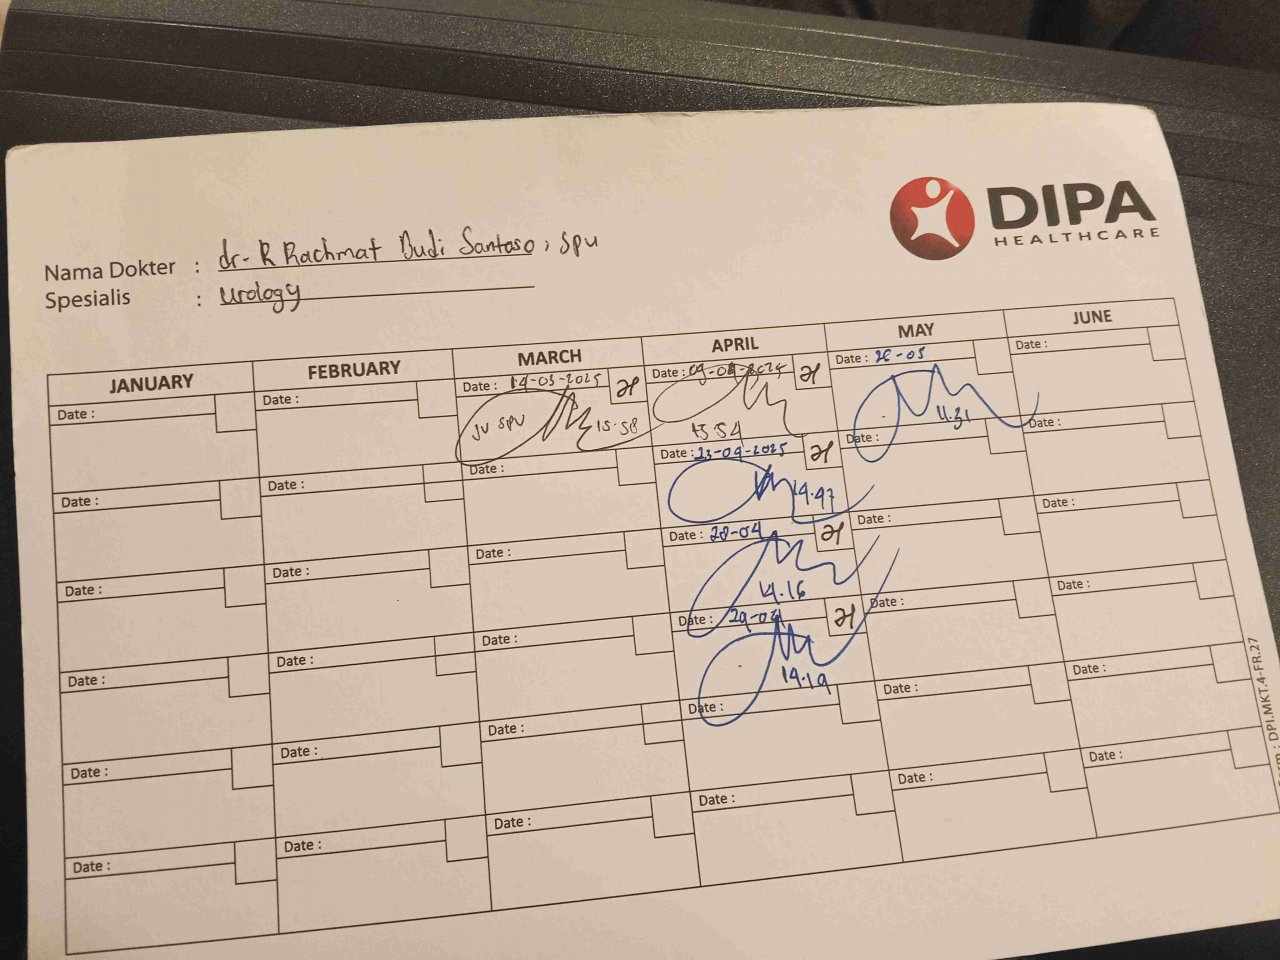 DIPA
HEALTHCARE
Nama Dokter : dr. R Rachmat Budi Santoso, SpU
Spesialis : Urology
JANUARY FEBRUARY MARCH APRIL MAY JUNE
Date : Date : Date : 14-03-2025 Date : Date : 26-05 Date :
SPU 15.58 15.54 11.31
Date : Date : Date : Date : 23-04-2025 Date : Date :
14.47
Date : Date : Date : Date : 28-04 Date : Date :
14.16
Date : Date : Date : Date : 29-04 Date : Date :
14.19
Date : Date : Date : Date : Date : Date :
Date : Date : Date : Date : Date : Date :
DPI.MKT.4-FR.27